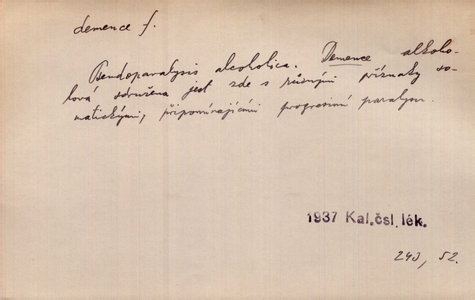 demence f.
Pseudoparalysis alcoholica. Demence alkoho-
lová sdružena jest zde s různými příznaky so-
matickými, připomínajícími progresivní paralysu.
1937 Kal.čsl.lék.
243, 52.